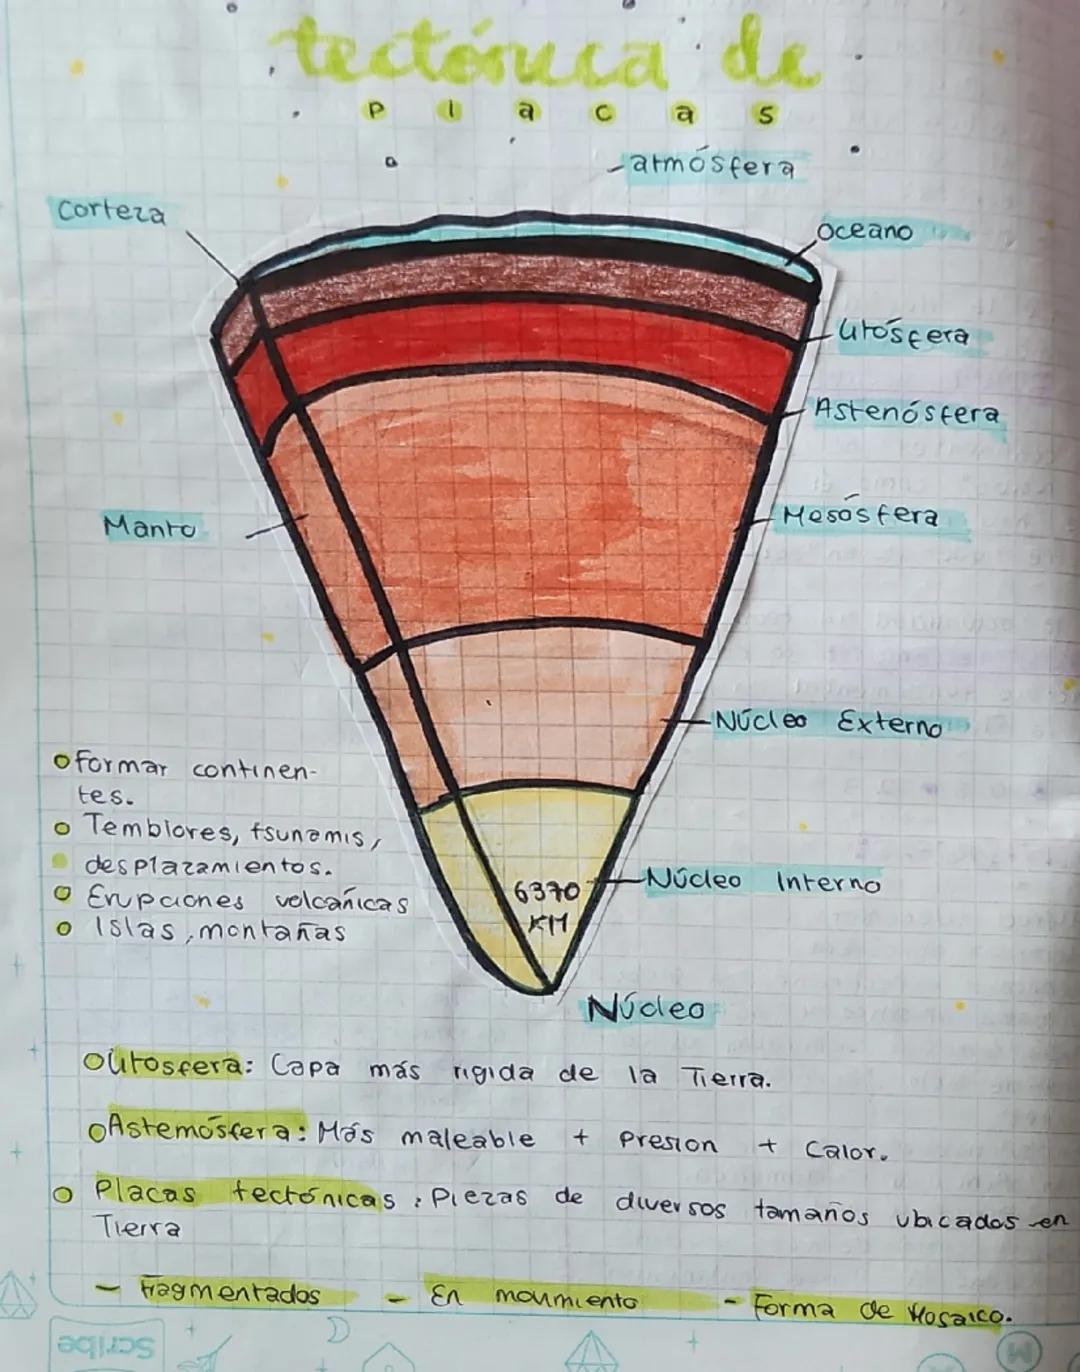 tectónica de
placas
atmósfera
Corteza
Oceano
Litósfera
Astenósfera
Manto
Mesósfera
Núcleo Externo
Formar continen-
tes.
Temblores, tsunamis,
desplazamientos.
Erupciones volcánicas
Islas, montañas
6370
KM
Núcleo Interno
Núcleo
Litosfera: Capa más rigida de la Tierra.
Astemósfera: Más maleable + Presion + Calor.
Placas tectónicas: Piezas de diversos tamaños ubicados en
Tierra
- Fragmentados - En movimiento - Forma de Mosaico.
Scribe